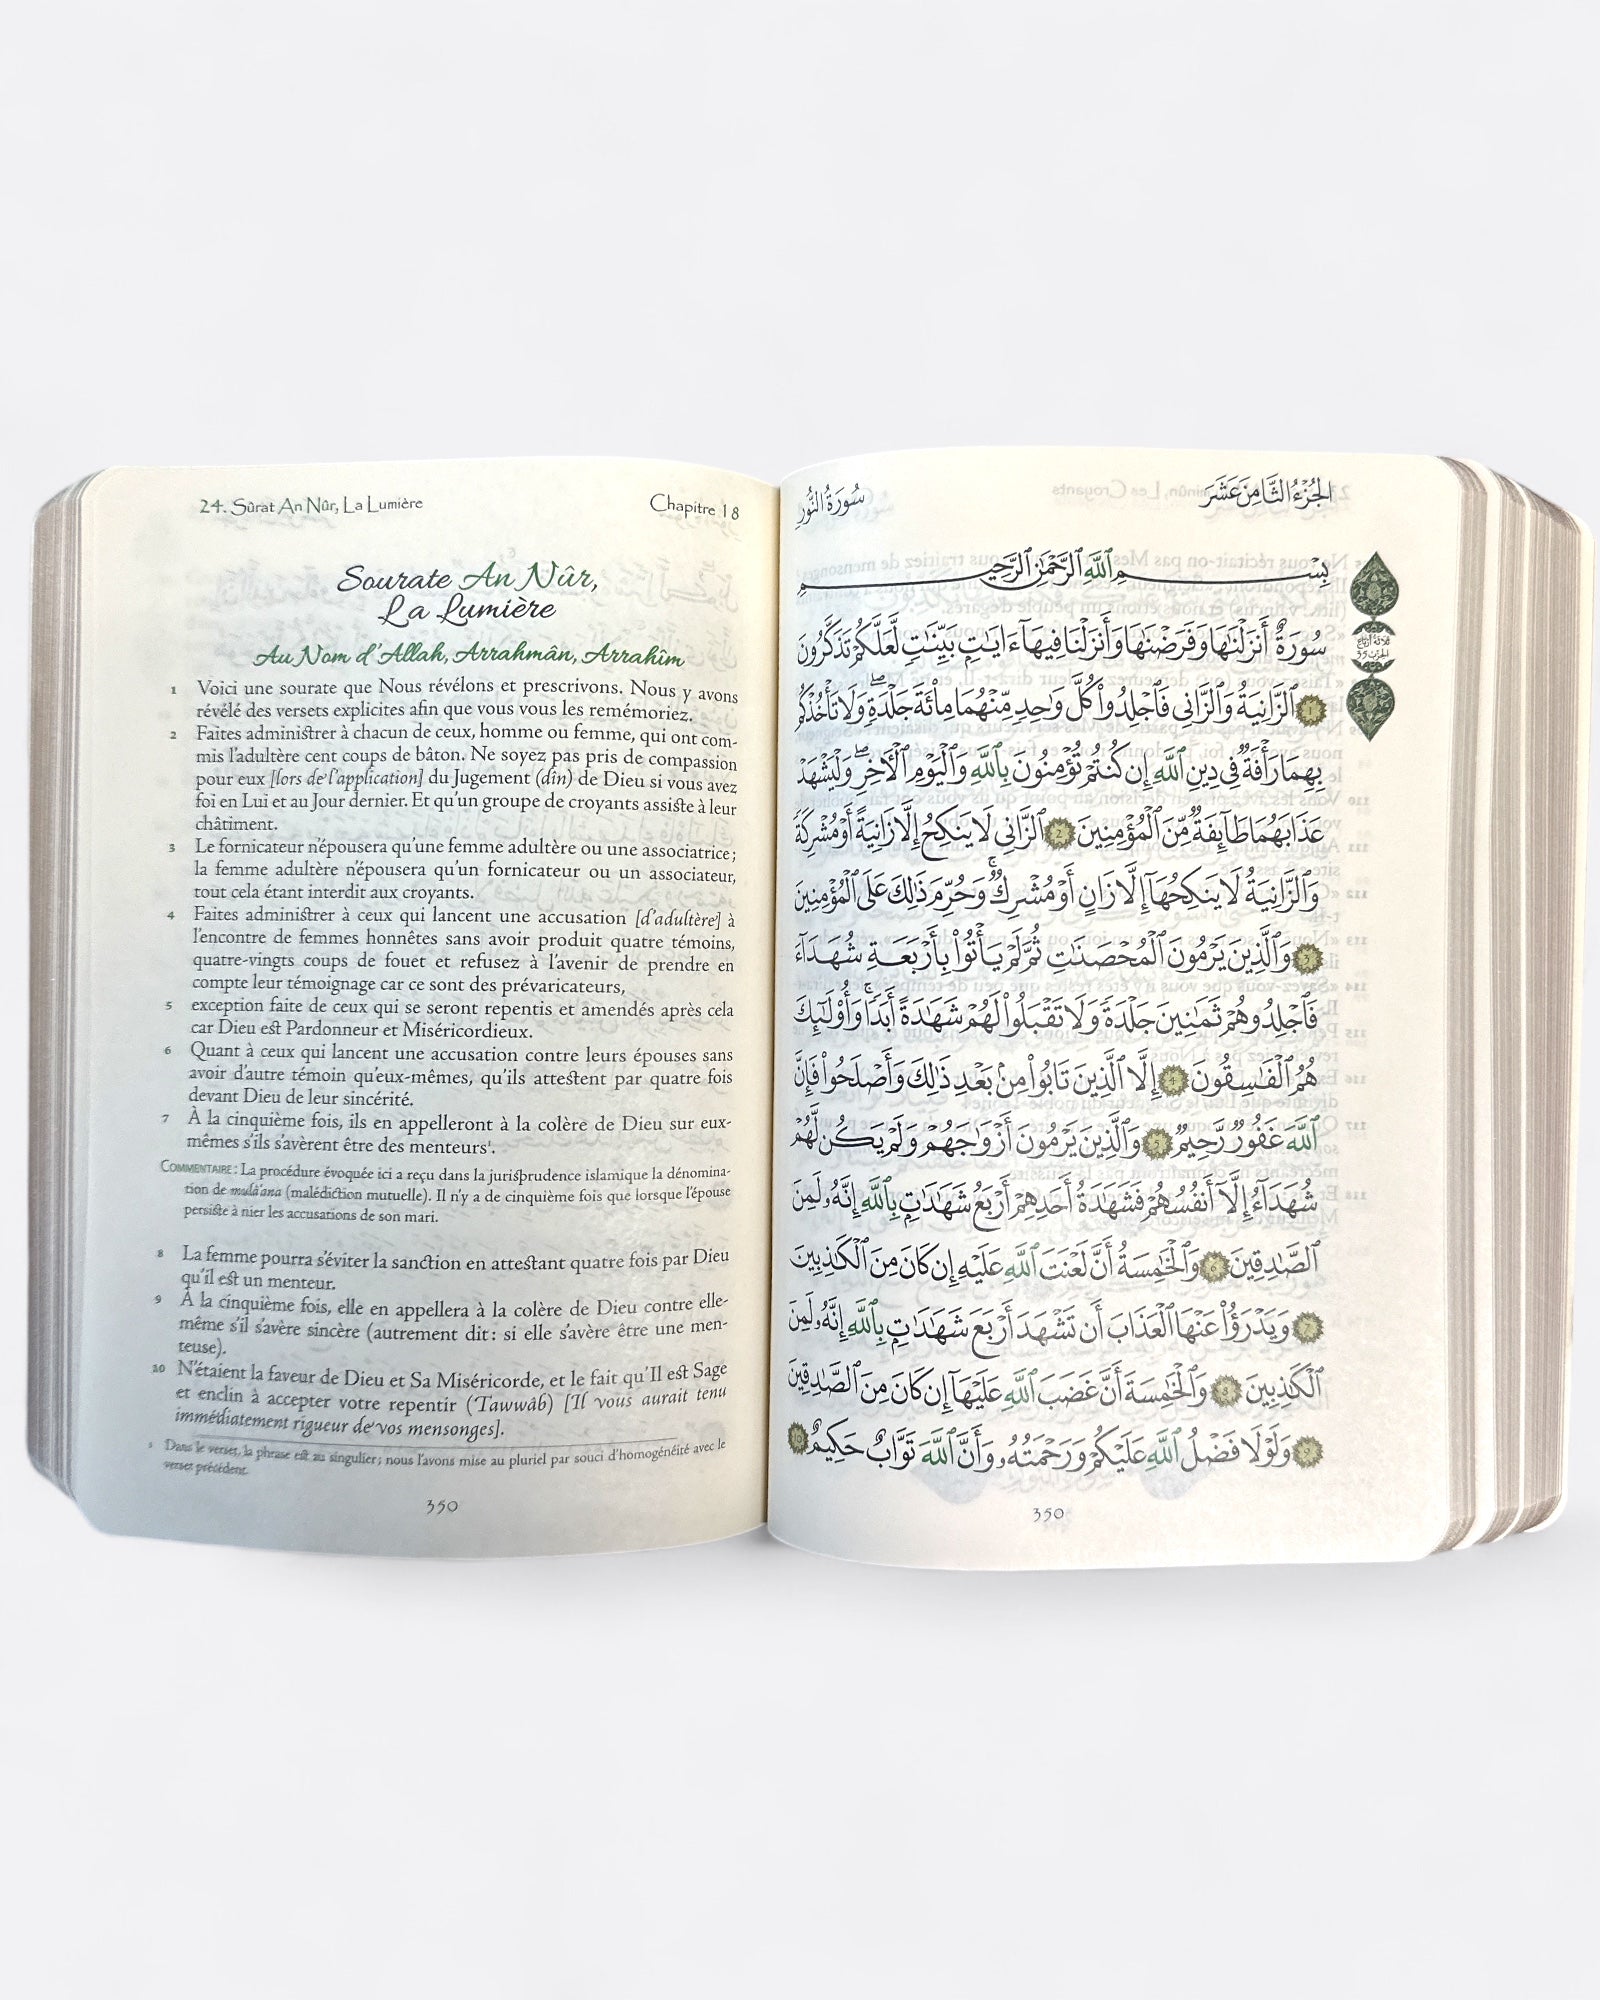 24. Sûrat An Nûr, La Lumière
Chapitre 18
Sourate An Nûr,
La Lumière
Au Nom d'Allah, Arrahmân, Arrahîm
1 Voici une sourate que Nous révélons et prescrivons. Nous y avons
révélé des versets explicites afin que vous vous les remémoriez.
2 Faites administrer à chacun de ceux, homme ou femme, qui ont com-
mis l'adultère cent coups de bâton. Ne soyez pas pris de compassion
pour eux [lors de l'application] du Jugement (dîn) de Dieu si vous avez
foi en Lui et au Jour dernier. Et qu'un groupe de croyants assiste à leur
châtiment.
3 Le fornicateur n'épousera qu'une femme adultère ou une associatrice;
la femme adultère n'épousera qu'un fornicateur ou un associateur,
tout cela étant interdit aux croyants.
4 Faites administrer à ceux qui lancent une accusation [d'adultère] à
l'encontre de femmes honnêtes sans avoir produit quatre témoins,
quatre-vingts coups de fouet et refusez à l'avenir de prendre en
compte leur témoignage car ce sont des prévaricateurs,
5 exception faite de ceux qui se seront repentis et amendés après cela
car Dieu est Pardonneur et Miséricordieux.
6 Quant à ceux qui lancent une accusation contre leurs épouses sans
avoir d'autre témoin qu'eux-mêmes, qu'ils attestent par quatre fois
devant Dieu de leur sincérité.
7 À la cinquième fois, ils en appelleront à la colère de Dieu sur eux-
mêmes s'ils s'avèrent être des menteurs¹.
COMMENTAIRE: La procédure évoquée ici a reçu dans la jurisprudence islamique la dénomina-
tion de mulâ'ana (malédiction mutuelle). Il n'y a de cinquième fois que lorsque l'épouse
persiste à nier les accusations de son mari.
8 La femme pourra s'éviter la sanction en attestant quatre fois par Dieu
qu'il est un menteur.
9 À la cinquième fois, elle en appellera à la colère de Dieu contre elle-
même s'il s'avère sincère (autrement dit: si elle s'avère être une men-
teuse).
10 N'étaient la faveur de Dieu et Sa Miséricorde, et le fait qu'Il est Sage
et enclin à accepter votre repentir (Tawwâb) [Il vous aurait tenu
immédiatement rigueur de vos mensonges].
¹ Dans le verset, la phrase est au singulier; nous l'avons mise au pluriel par souci d'homogénéité avec le
verset précédent.
350
الجُزْءُ الثَّامِنَ عَشَرَ
سُورَةُ النُّورِ
بِسْمِ ٱللَّهِ ٱلرَّحْمَٰنِ ٱلرَّحِيمِ
سُورَةٌ أَنزَلْنَٰهَا وَفَرَضْنَٰهَا وَأَنزَلْنَا فِيهَآ ءَايَٰتٍۭ بَيِّنَٰتٍ لَّعَلَّكُمْ تَذَكَّرُونَ
١ ٱلزَّانِيَةُ وَٱلزَّانِى فَٱجْلِدُوا۟ كُلَّ وَٰحِدٍ مِّنْهُمَا مِا۟ئَةَ جَلْدَةٍ ۖ وَلَا تَأْخُذْكُم
بِهِمَا رَأْفَةٌ فِى دِينِ ٱللَّهِ إِن كُنتُمْ تُؤْمِنُونَ بِٱللَّهِ وَٱلْيَوْمِ ٱلْءَاخِرِ ۖ وَلْيَشْهَدْ
عَذَابَهُمَا طَآئِفَةٌ مِّنَ ٱلْمُؤْمِنِينَ ٢ ٱلزَّانِى لَا يَنكِحُ إِلَّا زَانِيَةً أَوْ مُشْرِكَةً
وَٱلزَّانِيَةُ لَا يَنكِحُهَآ إِلَّا زَانٍ أَوْ مُشْرِكٌ ۚ وَحُرِّمَ ذَٰلِكَ عَلَى ٱلْمُؤْمِنِينَ
٣ وَٱلَّذِينَ يَرْمُونَ ٱلْمُحْصَنَٰتِ ثُمَّ لَمْ يَأْتُوا۟ بِأَرْبَعَةِ شُهَدَآءَ
فَٱجْلِدُوهُمْ ثَمَٰنِينَ جَلْدَةً وَلَا تَقْبَلُوا۟ لَهُمْ شَهَٰدَةً أَبَدًا ۚ وَأُو۟لَٰٓئِكَ
هُمُ ٱلْفَٰسِقُونَ ٤ إِلَّا ٱلَّذِينَ تَابُوا۟ مِنۢ بَعْدِ ذَٰلِكَ وَأَصْلَحُوا۟ فَإِنَّ
ٱللَّهَ غَفُورٌ رَّحِيمٌ ٥ وَٱلَّذِينَ يَرْمُونَ أَزْوَٰجَهُمْ وَلَمْ يَكُن لَّهُمْ
شُهَدَآءُ إِلَّآ أَنفُسُهُمْ فَشَهَٰدَةُ أَحَدِهِمْ أَرْبَعُ شَهَٰدَٰتٍۭ بِٱللَّهِ إِنَّهُۥ لَمِنَ
ٱلصَّٰدِقِينَ ٦ وَٱلْخَٰمِسَةُ أَنَّ لَعْنَتَ ٱللَّهِ عَلَيْهِ إِن كَانَ مِنَ ٱلْكَٰذِبِينَ
٧ وَيَدْرَؤُا۟ عَنْهَا ٱلْعَذَابَ أَن تَشْهَدَ أَرْبَعَ شَهَٰدَٰتٍۭ بِٱللَّهِ إِنَّهُۥ لَمِنَ
ٱلْكَٰذِبِينَ ٨ وَٱلْخَٰمِسَةَ أَنَّ غَضَبَ ٱللَّهِ عَلَيْهَآ إِن كَانَ مِنَ ٱلصَّٰدِقِينَ
٩ وَلَوْلَا فَضْلُ ٱللَّهِ عَلَيْكُمْ وَرَحْمَتُهُۥ وَأَنَّ ٱللَّهَ تَوَّابٌ حَكِيمٌ ١٠
ثلاثة أرباع
الحزب ٣٥
350